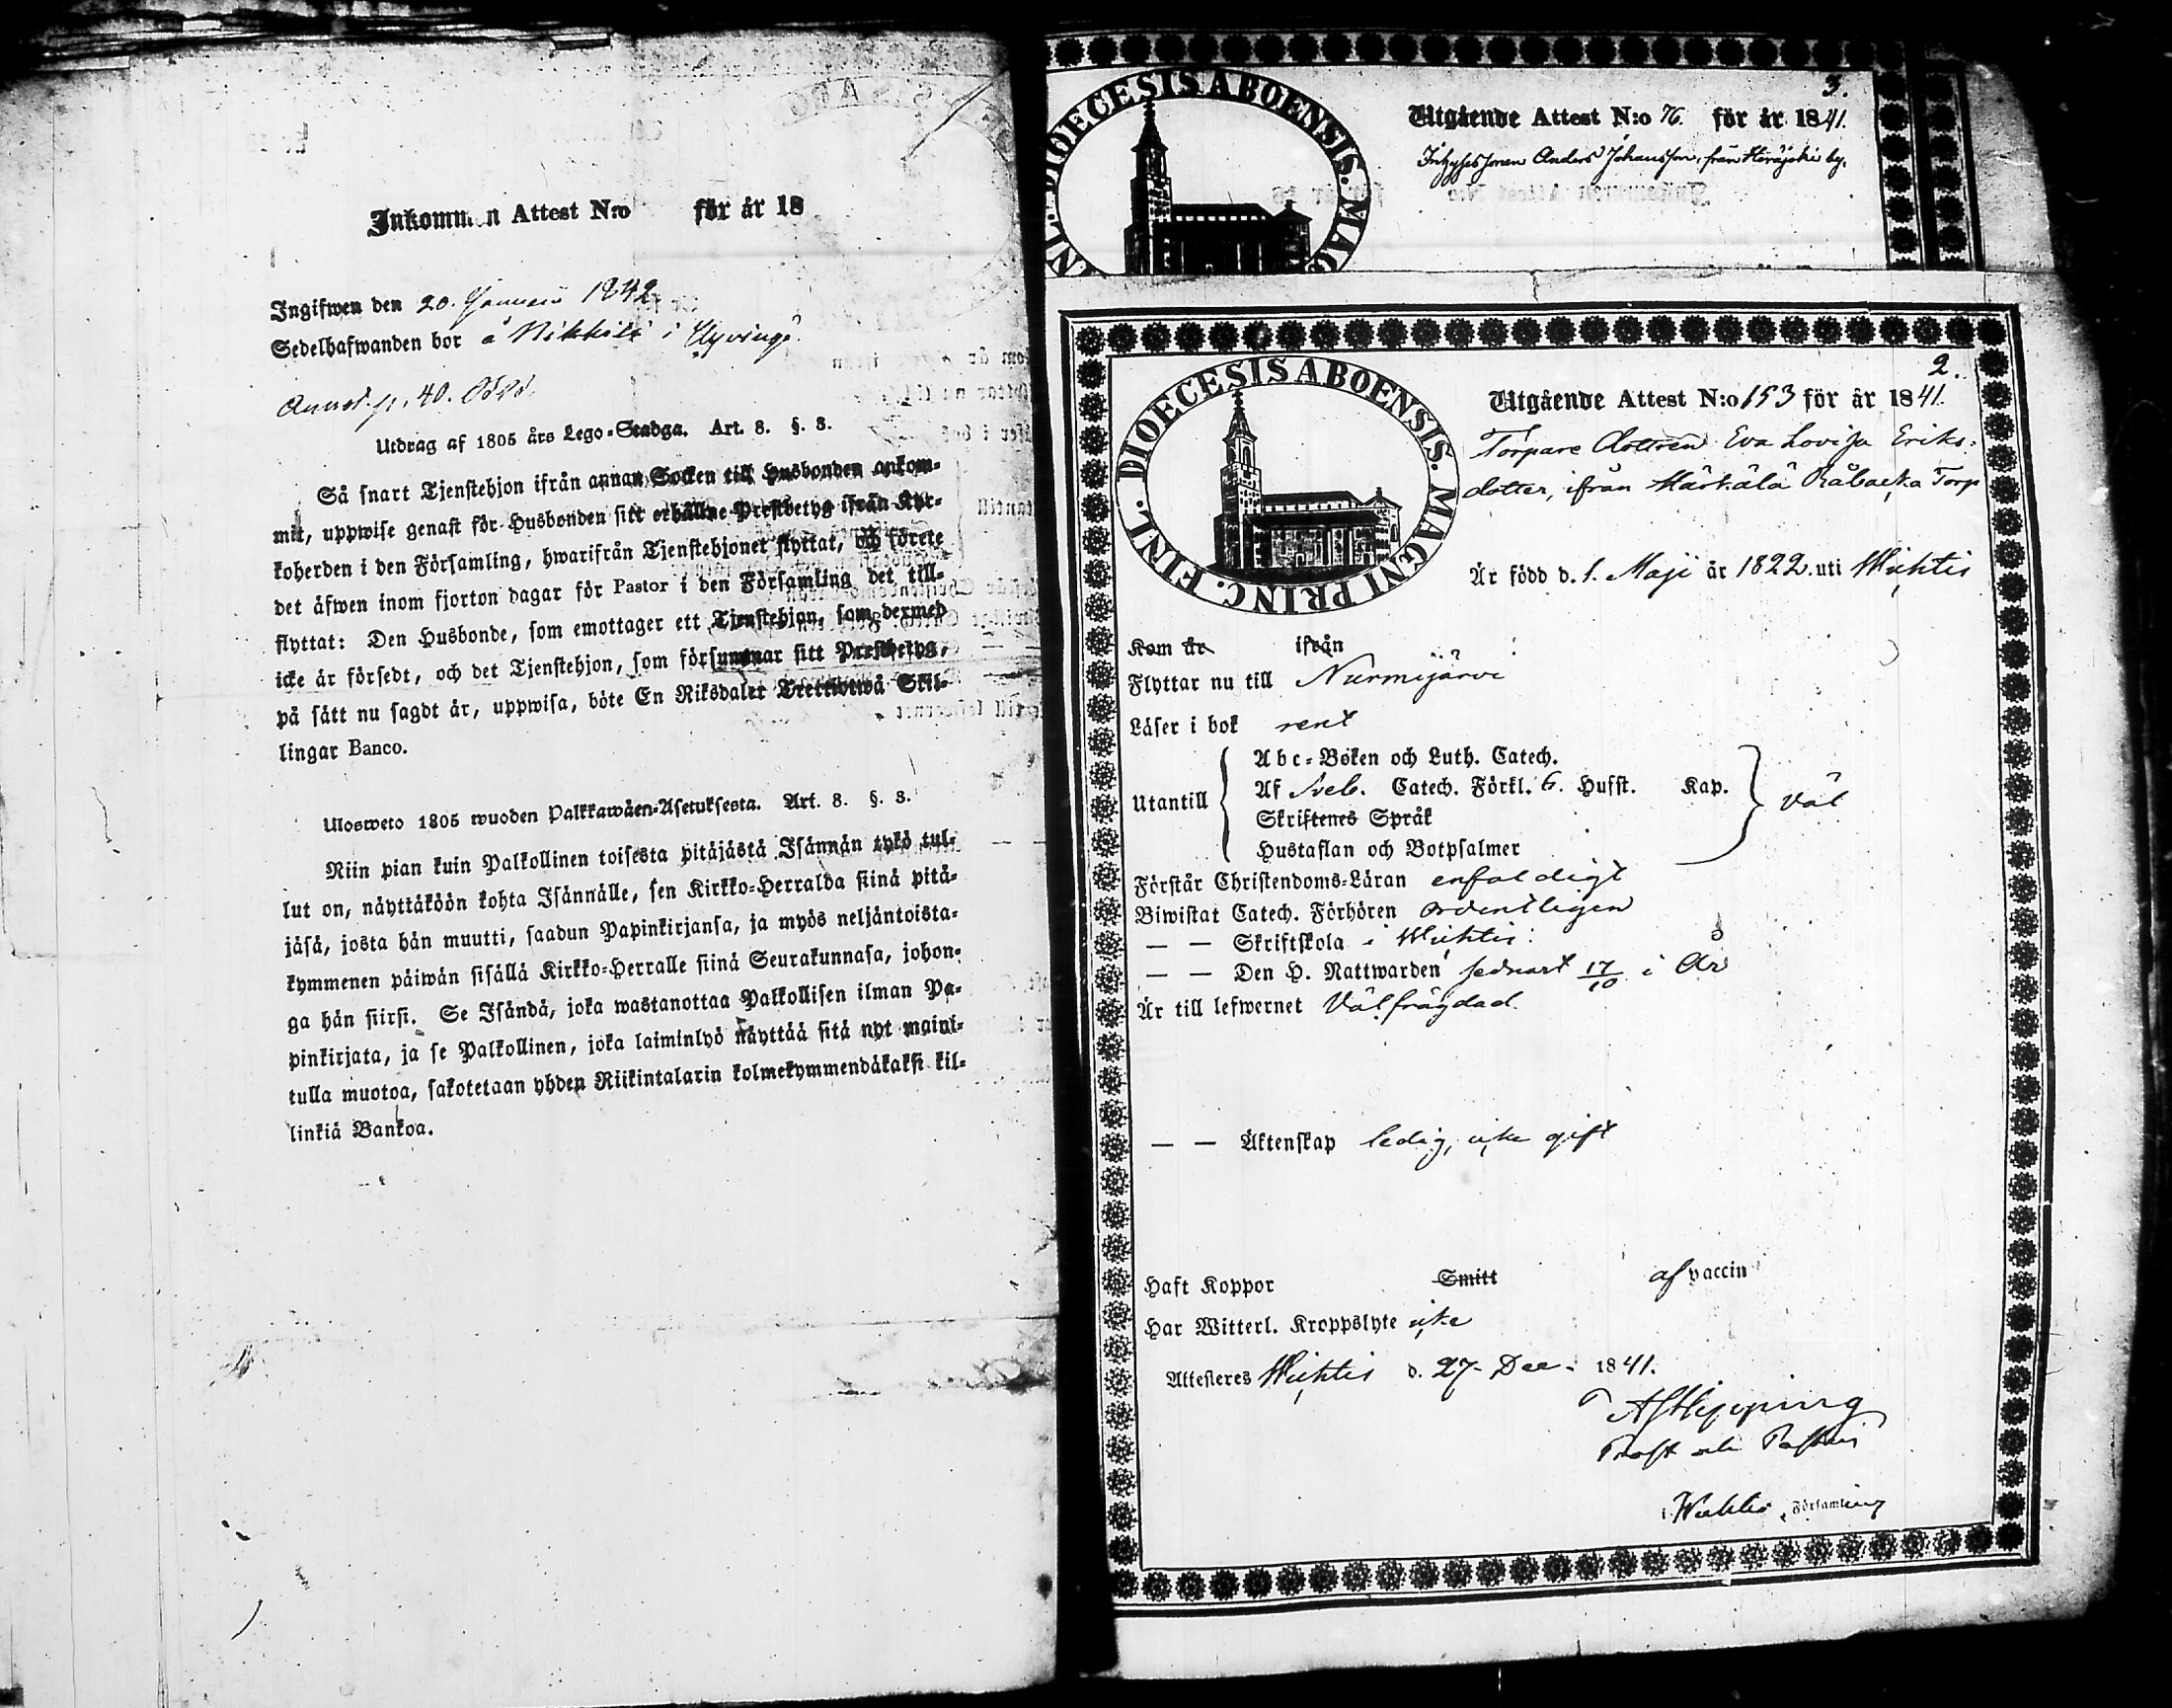 Inkommen Attest N:o för år 18
Ingifwen den 20. Januarii 1842.
Sedelhafwanden bor å Nikkilä i Hyvinge.
Annot. p. 40.
Utdrag af 1805 års Lego-Stadga. Art. 8. §. 3.
Så snart Tjenstehjon ifrån annan Socken till Husbonden ankom-
mit, uppwise genast för Husbonden sitt erhållne Prestbetyg ifrån Kyr-
koherden i den Församling, hwarifrån Tjenstehjonet flyttat, och förete
det äfwen inom fjorton dagar för Pastor i den Församling det till-
flyttat: Den Husbonde, som emottager ett Tjenstehjon, som dermed
icke är försedt, och det Tjenstehjon, som försummar sitt Prestbetyg,
på sätt nu sagdt är, uppwisa, böte En Riksdaler Trettiotwå Skil-
lingar Banco.
Ulosweto 1805 wuoden Palkkawäen-Asetuksesta. Art. 8. §. 3.
Niin pian kuin Palkollinen toisesta pitäjästä Isännän tykö tul-
lut on, näyttäköön kohta Isännälle, sen Kirkko-Herralda siinä pitä-
jäsä, josta hän muutti, saadun Papinkirjansa, ja myös neljäntoista-
kymmenen päiwän sisällä Kirkko-Herralle siinä Seurakunnasa, johon-
ga hän siirsi. Se Isändä, joka wastanottaa Palkollisen ilman Pa-
pinkirjata, ja se Palkollinen, joka laiminlyö näyttää sitä nyt maini-
tulla muotoa, sakotetaan yhden Riikintalarin kolmekymmendäkaksi kil-
linkiä Bankoa.
3.
DIOECESIS ABOENSIS. MAG
INL.
Utgående Attest N:o 76. för år 1841.
Inhysessonen Anders Johansson, från Heräjoki by.
2.
DIOECESIS ABOENSIS. MAGNI PRINC. FINL.
Utgående Attest N:o 153 för år 1841.
Torpare dottren Eva Lovisa Eriks-
dotter, ifrån Härkälä Råbacka Torp
Är född d. 1. Maji år 1822. uti Wichtis
Kom år ifrån
Flyttar nu till Nurmijärvi
Läser i bok rent
Utantill
Abc-Boken och Luth. Catech.
Af Sveb. Catech. Förkl. 6. Hufst. Kap.
Skriftenes Språk
Hustaflan och Botpsalmer
väl
Förstår Christendoms-Läran enfaldigt
Biwistat Catech. Förhören ordentligen
— — Skriftskola i Wichtis.
— — Den H. Nattwarden sednast 17/10 i År
Är till lefwernet Välfrägdad
— — Äktenskap ledig, icke gift
Haft Koppor Smitt af vaccin
Har Witterl. Kroppslyte icke
Attesteres Wichtis d. 27 Dec. 1841.
Prost och Pastor
i Wichtis Församling